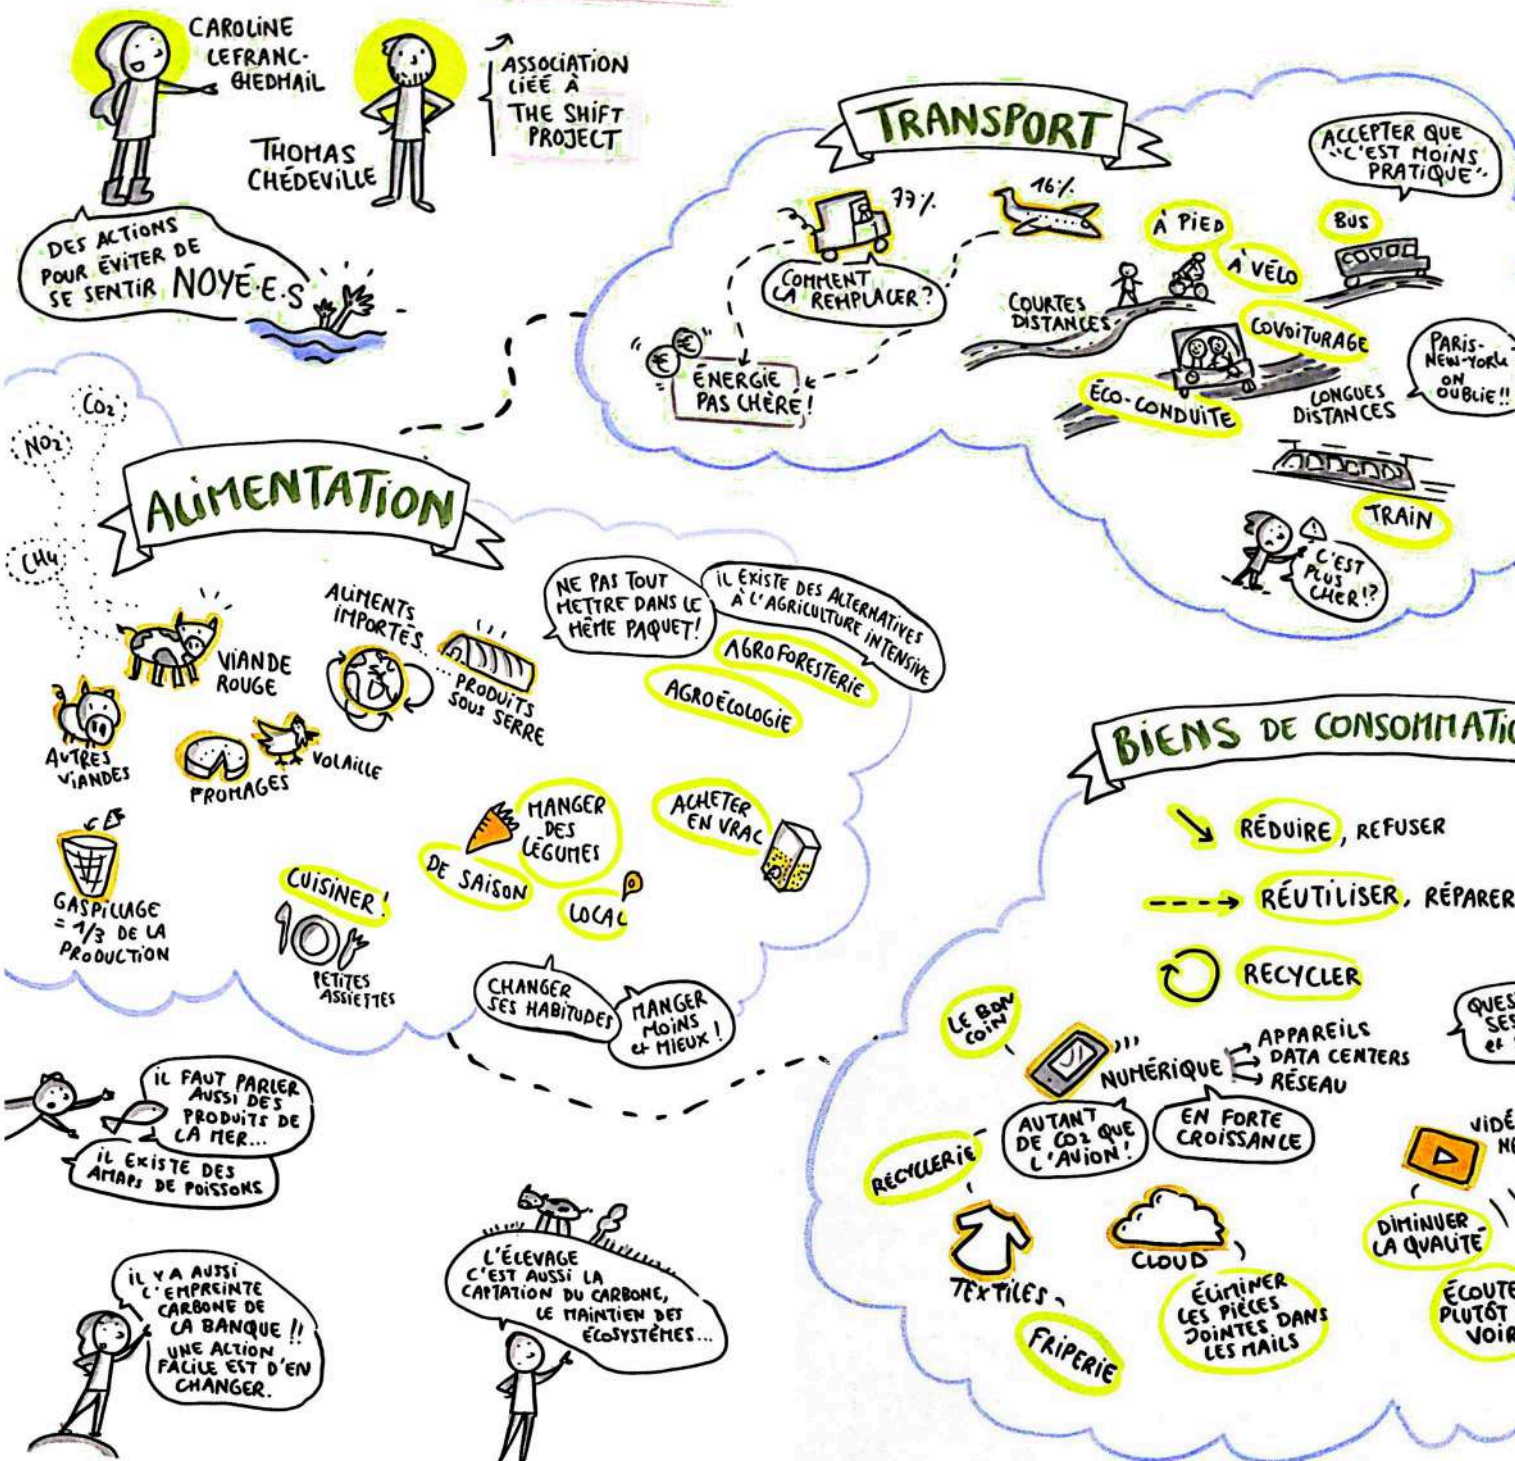 CAROLINE
LEFRANC-
GHEDMAIL
THOMAS
CHÉDEVILLE
ASSOCIATION
LIÉE À
THE SHIFT
PROJECT
DES ACTIONS
POUR ÉVITER DE
SE SENTIR NOYÉ·E·S
TRANSPORT
77%
16%
COMMENT
LA REMPLACER ?
€ €
ÉNERGIE
PAS CHÈRE !
ACCEPTER QUE
"C'EST MOINS
PRATIQUE"
À PIED
À VÉLO
BUS
COURTES
DISTANCES
COVOITURAGE
ÉCO-CONDUITE
LONGUES
DISTANCES
PARIS-
NEW-YORK
ON
OUBLIE !!
TRAIN
!
C'EST
PLUS
CHER !?
ALIMENTATION
CO2
NO2
CH4
VIANDE
ROUGE
AUTRES
VIANDES
FROMAGES
VOLAILLE
ALIMENTS
IMPORTÉS...
...PRODUITS
SOUS SERRE
NE PAS TOUT
METTRE DANS LE
MÊME PAQUET !
IL EXISTE DES ALTERNATIVES
À L'AGRICULTURE INTENSIVE
AGROFORESTERIE
AGROÉCOLOGIE
GASPILLAGE
= 1/3 DE LA
PRODUCTION
CUISINER !
PETITES
ASSIETTES
MANGER
DES
LÉGUMES
DE SAISON
LOCAL
ACHETER
EN VRAC
CHANGER
SES HABITUDES
MANGER
MOINS
et MIEUX !
IL FAUT PARLER
AUSSI DES
PRODUITS DE
LA MER...
IL EXISTE DES
AMAPs DE POISSONS
IL Y A AUSSI
L'EMPREINTE
CARBONE DE
LA BANQUE !!
UNE ACTION
FACILE EST D'EN
CHANGER.
L'ÉLEVAGE
C'EST AUSSI LA
CAPTATION DU CARBONE,
LE MAINTIEN DES
ÉCOSYSTÈMES...
BIENS DE CONSOMMATIO
RÉDUIRE, REFUSER
RÉUTILISER, RÉPARER
RECYCLER
QUES
SES
et
LE BON
COIN
NUMÉRIQUE
APPAREILS
DATA CENTERS
RÉSEAU
AUTANT
DE CO2 QUE
L'AVION !
EN FORTE
CROISSANCE
RECYCLERIE
TEXTILES
FRIPERIE
CLOUD
ÉLIMINER
LES PIÈCES
JOINTES DANS
LES MAILS
VIDÉ
NE
DIMINUER
LA QUALITÉ
ÉCOUTE
PLUTÔT
VOIR